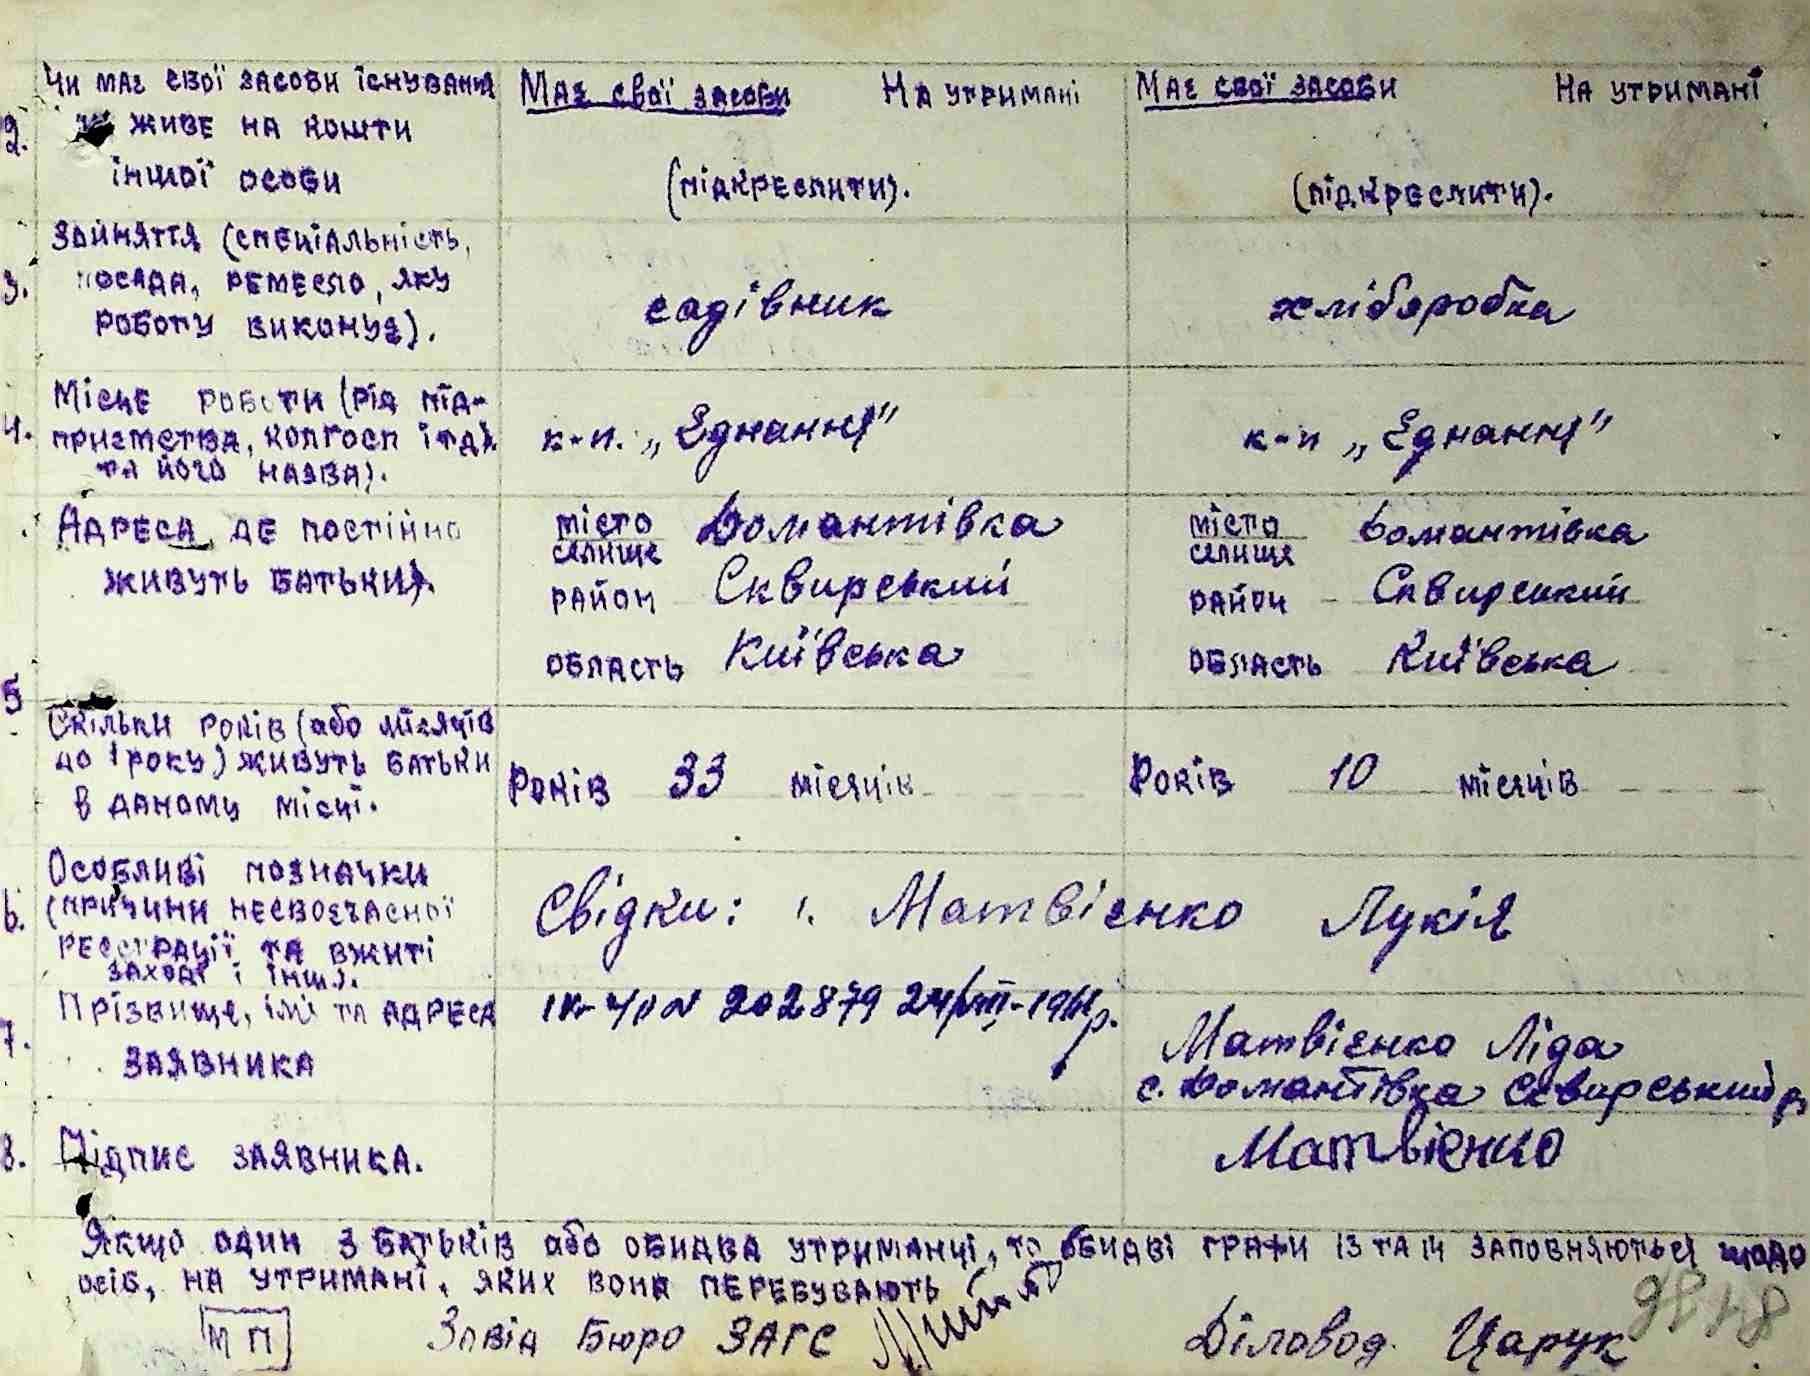 Чи має свої засоби існування Має свої засоби На утримані Має свої засоби На утримані
2. чи живе на кошти
іншої особи (підкреслити). (підкреслити).
Зайняття (спеціальність,
3. посада, ремесло, яку садівник хліборобка
роботу виконує).
Місце роботи (рід під-
4. приємства, колгосп і т.д. к-п. „Єднання" к-п „Єднання"
та його назва).
Адреса, де постійно місто Домантівка місто Домантівка
селище селище
живуть батьки). район Сквирський район Сквирський
область Київська область Київська
5
Скільки років (або місяців
до 1 року) живуть батьки Років 33 місяців Років 10 місяців
в даному місці.
Особливі позначки
6. (причини несвоєчасної Свідки: 1. Матвієнко Лукія
реєстрації та вжиті
заході і інш).
Прізвище, імі та адреса № 202879
7. заявника Матвієнко Ліда
с. Домантівка Сквирський р
8. Підпис заявника. Матвієнко
Якщо один з батьків або обидва утриманці, то обидві графи 13 та 14 заповняються щодо
осіб, на утримані, яких вона перебувають
М П Завід Бюро ЗАГС Діловод. Царук